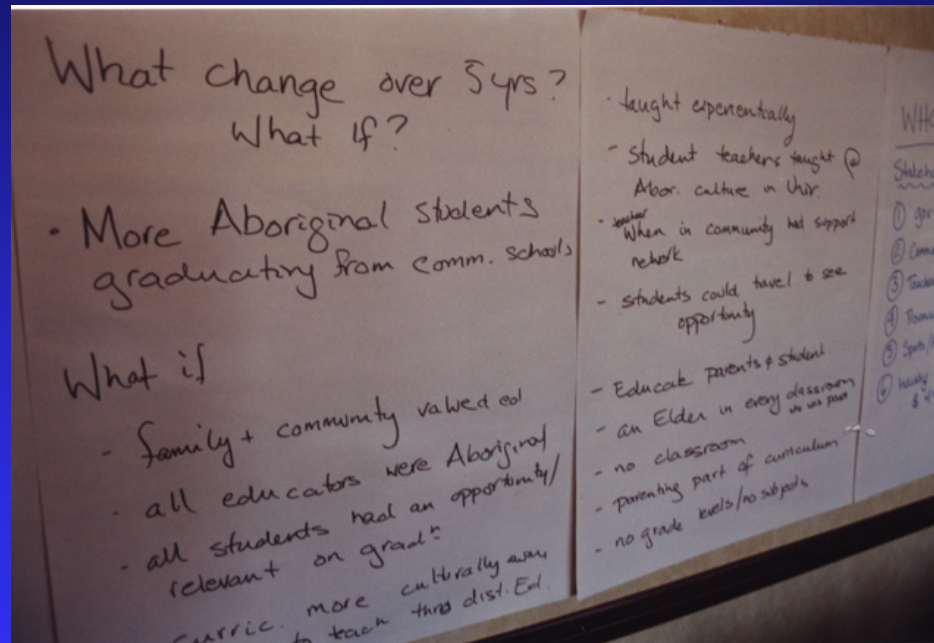 What change over 5 yrs?
What If?
• More Aboriginal students
graduating from comm. schools
What if
- family + community valued ed
- all educators were Aboriginal
- all students had an opportunity/
relevant on grad n
curric. more culturally aware
to teach thro dist. Ed.
- taught experientially
- Student teachers taught @
Abor. culture in Univ.
- teacher
When in community had support
network
- students could travel to see
opportunity
- Educate parents & student
- an Elder in every classroom
who was paid
- no classroom
- parenting part of curriculum
- no grade levels/no subjects
WHO
Stakeho
① gov
② Comm
③ Teache
④
⑤ Sports/
⑥